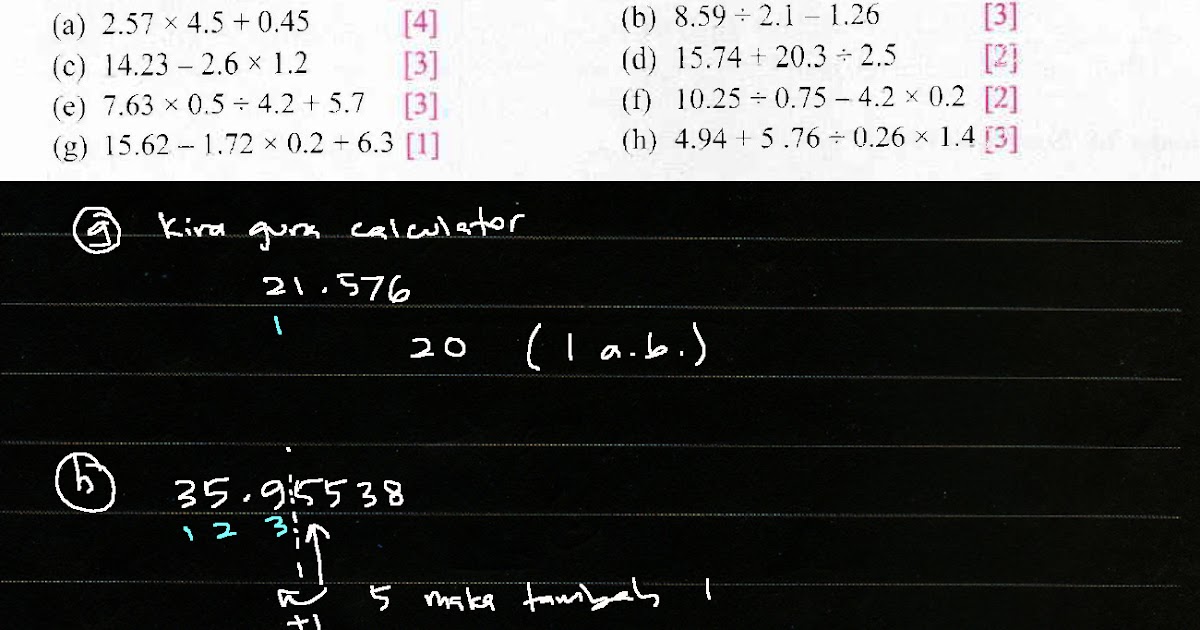 (a) 2.57 × 4.5 + 0.45 [4] (b) 8.59 ÷ 2.1 – 1.26 [3]
(c) 14.23 – 2.6 × 1.2 [3] (d) 15.74 + 20.3 ÷ 2.5 [2]
(e) 7.63 × 0.5 ÷ 4.2 + 5.7 [3] (f) 10.25 ÷ 0.75 – 4.2 × 0.2 [2]
(g) 15.62 – 1.72 × 0.2 + 6.3 [1] (h) 4.94 + 5 .76 ÷ 0.26 × 1.4 [3]
g kira guna calculator
21.576
1
20 (1 a.b.)
h 35.95538
1 2 3
5 maka tambah 1
+1